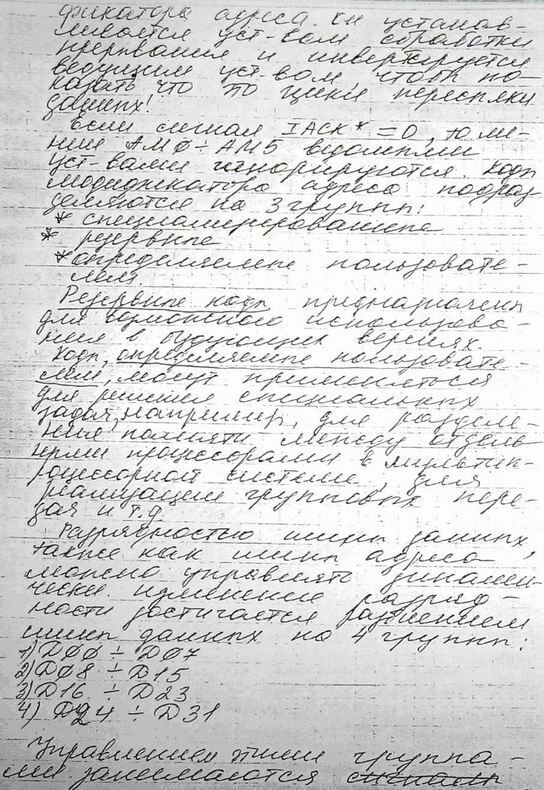 фикатора адреса. он устанав-
ливается уст-вом обработки
прерывания и инвертируется
ведущим уст-вом, чтобы по-
казать что то цикл пересылки
данных!
Если сигнал IACK* = 0, то ли-
нии AMØ ÷ AM5 ведомыми
уст-вами игнорируются. Коды
модификатора адреса подраз
деляются на 3 группы:
* специализированные
* резервные
* определяемые пользовате-
лем
Резервные коды предназначены
для возможного использова-
ния в будующих версиях.
Коды, определяемые пользовате-
лем, могут применяться
для решения специальных
задач, например, для разделе-
ния памяти между отдель
ными процессорами в мультип-
роцессорной системе, для
реализации групповых пере-
дач и т.д.
Разрядностью шины данных,
также как шины адреса
можно управлять динамич-
чески изменение разряд-
ности достигается разбиением
шины данных на 4 группы:
1) DØØ ÷ DØ7
2) DØ8 ÷ D15
3) D16 ÷ D23
4) D24 ÷ D31
Управлением этими группа-
ми занимаются сигналы